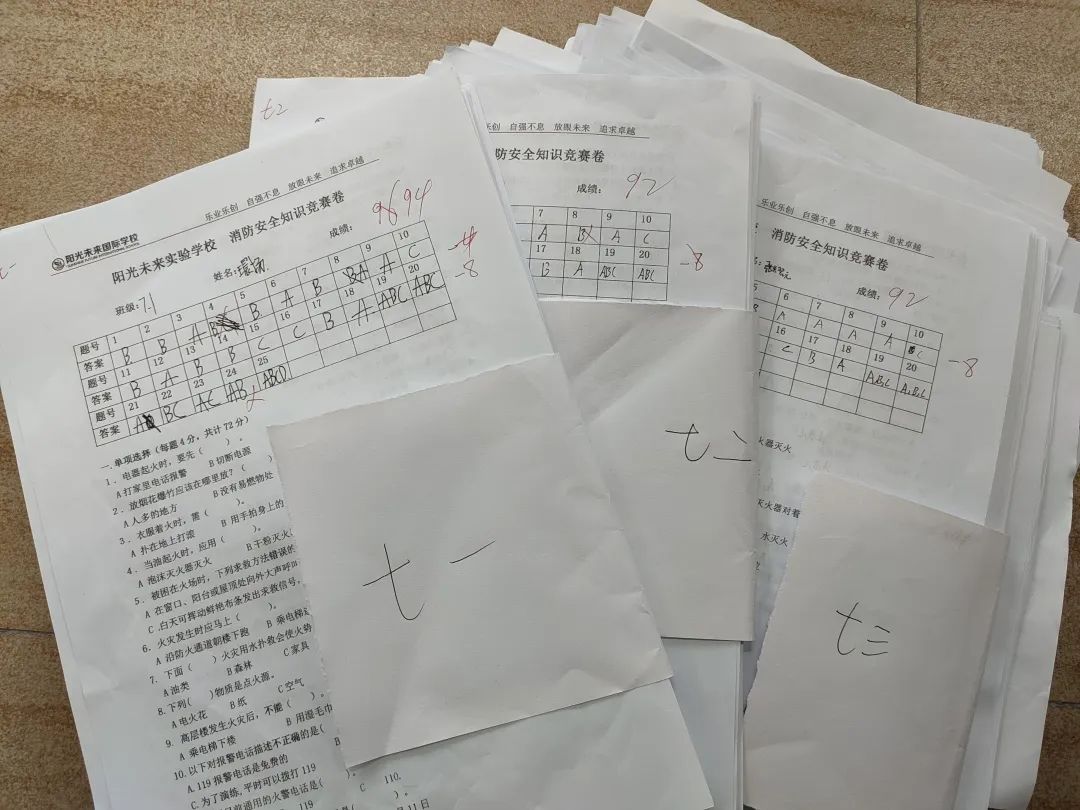 t2
乐业乐创 自强不息 放眼未来 追求卓越
阳光未来国际学校
阳光未来实验学校 消防安全知识竞赛卷
班级: 7.1
姓名:
成绩: 94
-4
-8
题号 1 2 3 4 5 6 7 8 9 10
答案 B B A B A B A A C
题号 11 12 13 14 15 16 17 18 19 20
答案 B A B B C C B A ABC ABC
题号 21 22 23 24 25
答案 A BC AC AB ABCD
一.单项选择(每题4分,共计72分)
1. 电器起火时,要先( )。
A打家里电话报警 B切断电源
2. 放烟花爆竹应该在哪里放?( )
A人多的地方 B没有易燃物处
3. 衣服着火时,需( )。
A 扑在地上打滚 B 用手拍身上的
4. 当油起火时,应用( )。
A 泡沫灭火器灭火 B干粉灭火
5. 被困在火场时,下列求救方法错误的
A 在窗口、阳台或屋顶处向外大声呼叫
C.白天可挥动鲜艳布条发出求救信号,
6. 火灾发生时应马上( )。
A 沿防火通道朝楼下跑 B 乘电梯
7. 下面( )火灾用水扑救会使火势
A油类 B森林 C家具
8.下列( )物质是点火源。
A电火花 B纸 C空气
9. 高层楼发生火灾后,不能( )。
A 乘电梯下楼 B 用湿毛巾
10.以下对报警电话描述不正确的是(
A.119报警电话是免费的 B
C.为了演练,平时可以拨打119
通用的火警电话是( )。
119 C 110.
月11日
七一
乐创 自强不息 放眼未来 追求卓越
防安全知识竞赛卷
成绩: 92
7 8 9 10
A B A C
17 18 19 20
B A ABC ABC
-8
七二
乐业乐创 自强不息 放眼未来 追求卓越
消防安全知识竞赛卷
成绩: 92
5 6 7 8 9 10
A A A A C
16 17 18 19 20
C B A ABC ABC
-8
火器灭火
灭火器对着
水灭火
七三